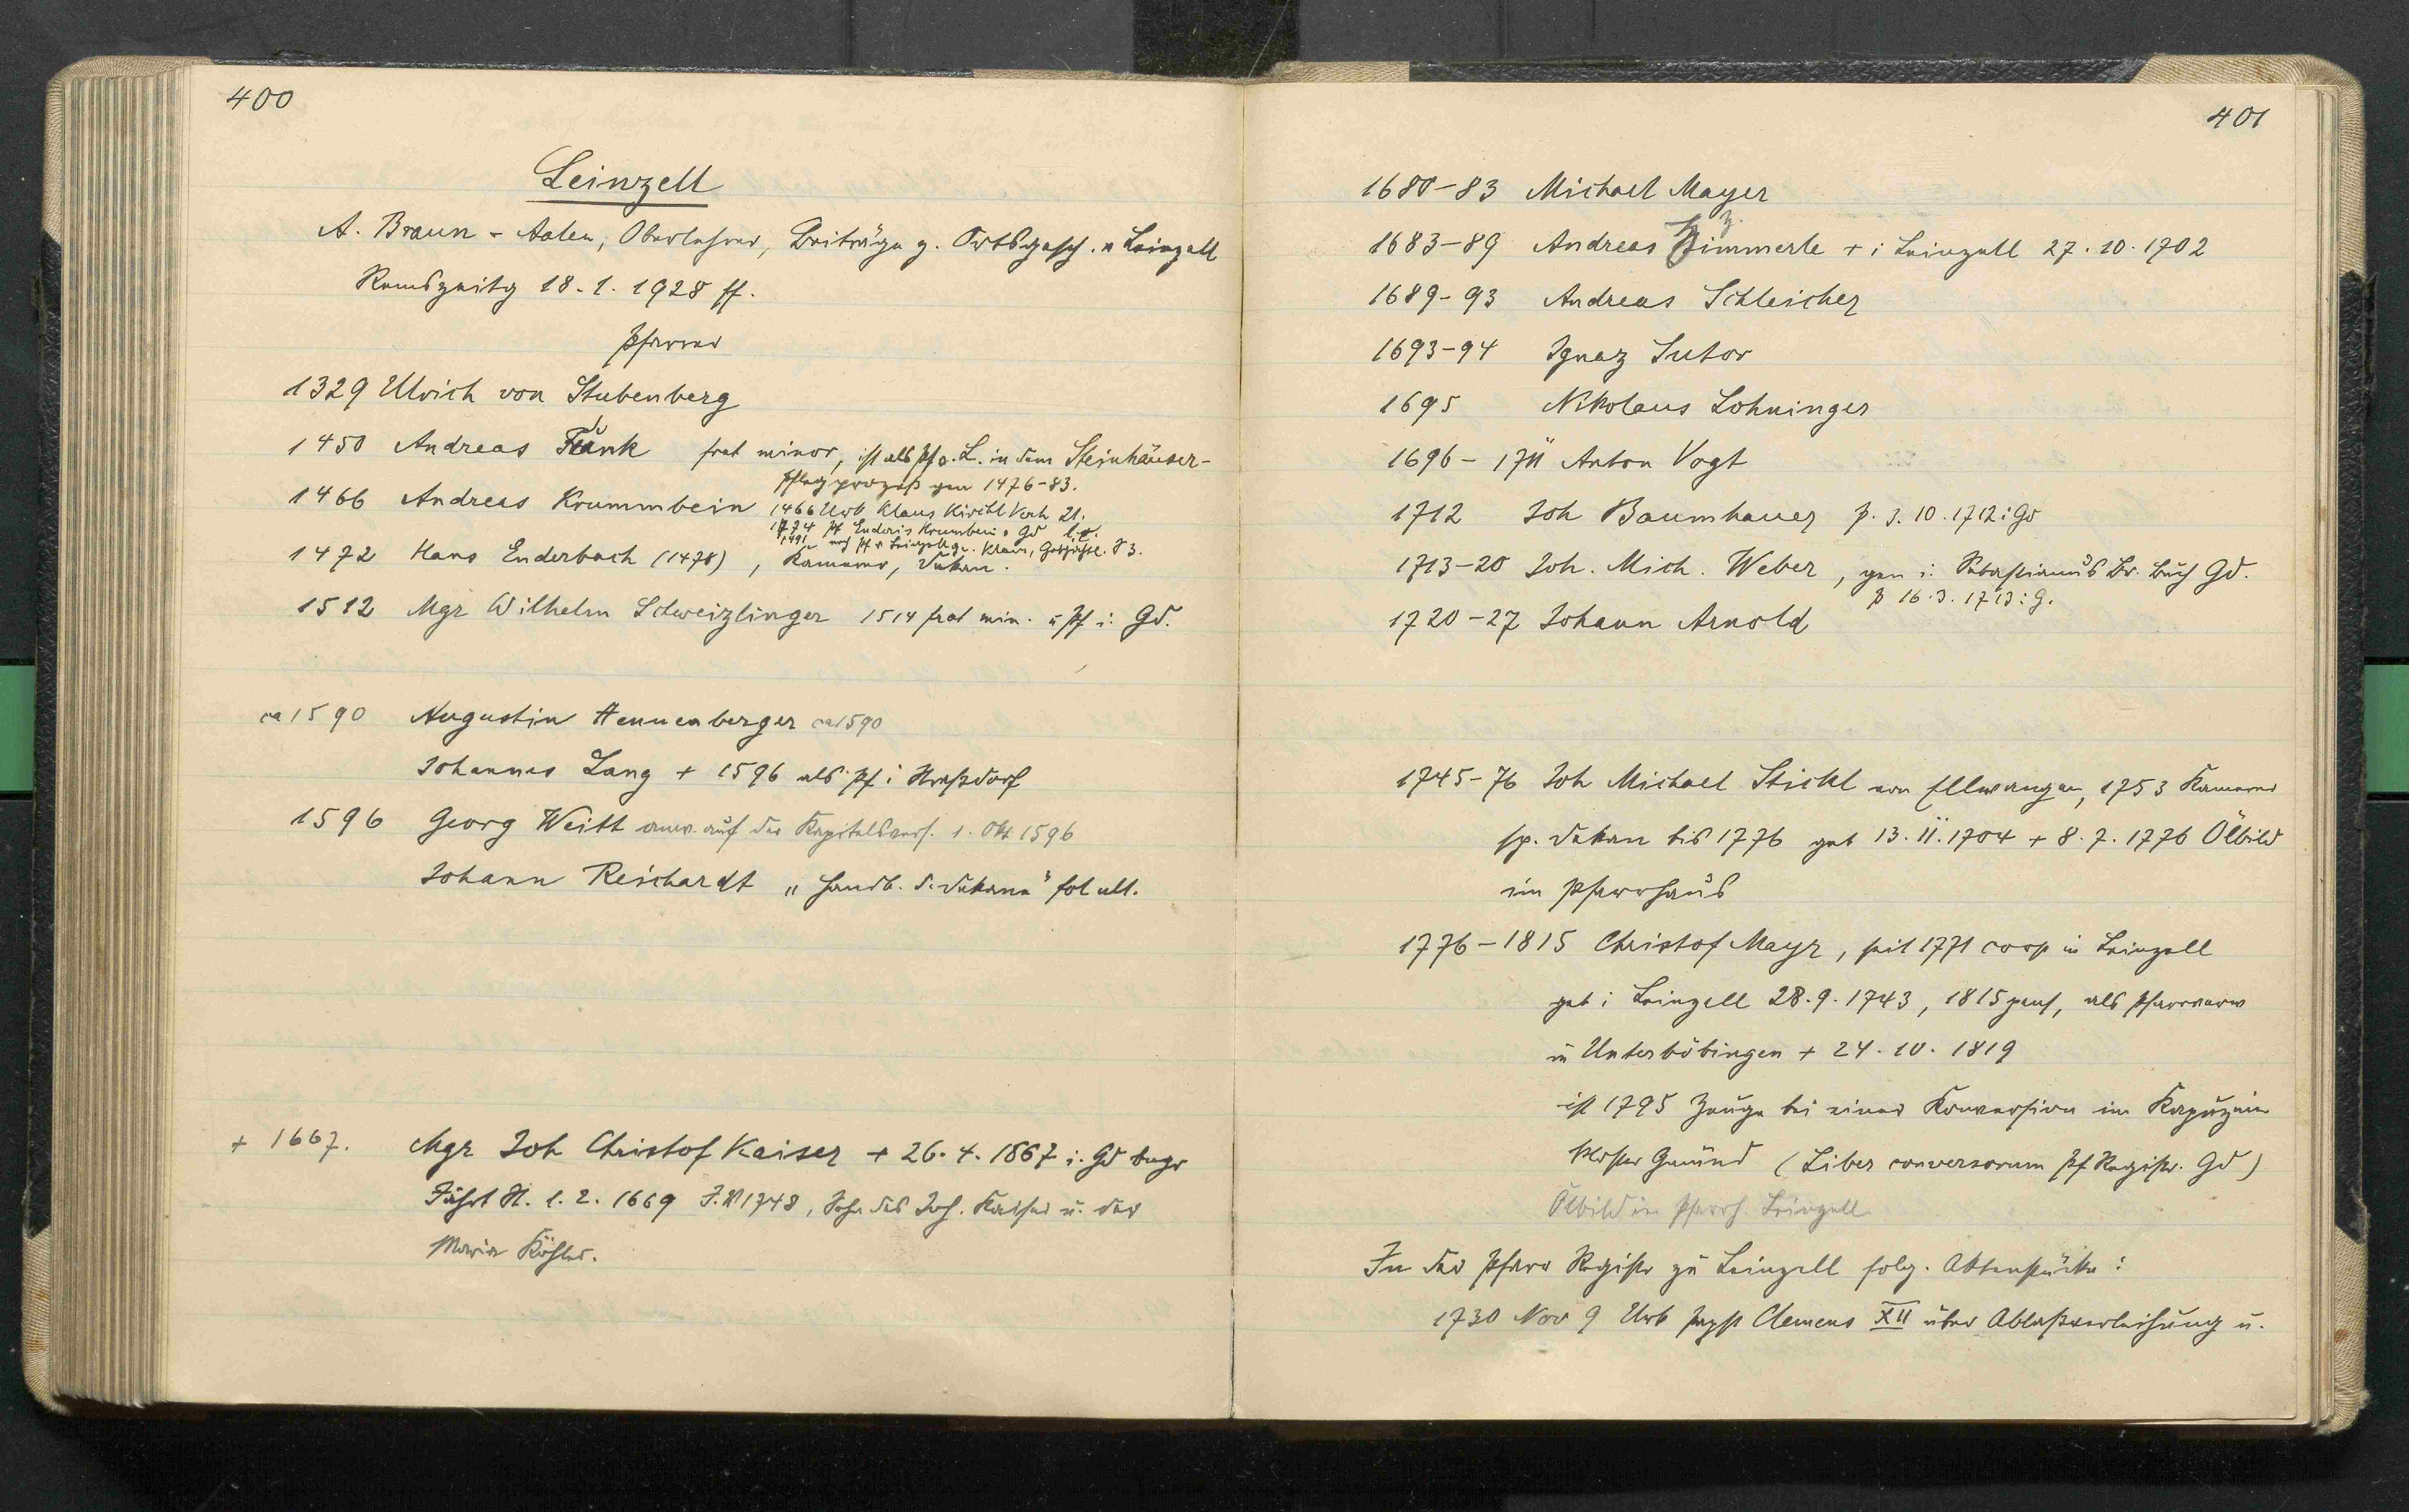 400
Leinzell
A. Braun - Aalen, Oberlehrer, Beiträge z. Ortsgesch. v Leinzell
Remszeitg 18.1.1928 ff.
Pfarrer
1329 Ulrich von Stubenberg
1450 Andreas Funk frat minor, ist als Pf v. L. in dem Steinhäuser-
Pfleg prozeß gen 1476-83.
1466 Andreas Krummbein 1466 Urk Klaus Kirchl Verh 21.
1474 Pf Enderis Krumbein v Gd
1491 noch Pf v Leinzell gen. Klaus, Gebräuche. 83.
1472 Hans Enderbach (1478), Kamerer, Dekan.
1512 Mgr Wilhelm Schweizlinger 1514 frat min. u Pf i. Gd.
ca 1590 Augustin Hennenberger ca 1590
Johannes Lang + 1596 als Pf i Straßdorf
1596 Georg Weitt anw. auf der Kapitelsvers. 1. Okt 1596
Johann Reichardt "Handb. d. Dekane" fol ult.
+ 1667. Mgr Joh Christof Kaiser + 26.4.1667 i. Gd
Jahrt St. 1.2.1669 J. N 1748, Sohn des Joh. Kaiser u. der
Maria Köhler.
401
1680-83 Michael Mayer
1683-89 Andreas Zimmerle + i Leinzell 27.10.1702
1689-93 Andreas Schleicher
1693-94 Ignaz Sutor
1695 Nikolaus Lohninger
1696 - 1711 Anton Vogt
1712 Joh Baumhauer p. 3.10.1712 i Gd
1713-20 Joh. Mich. Weber, gen i. Sebastianus Br. Buch Gd.
p 16.3.1713 i G.
1720-27 Johann Arnold
1745-76 Joh Michael Stickl von Ellwangen, 1753 Kamerer
sp. Dekan bis 1776 geb 13.11.1704 + 8.7.1776 Ölbild
im Pfarrhaus
1776-1815 Christof Mayr, seit 1771 coop in Leinzell
geb i Leinzell 28.9.1743, 1815 pens, als Pfarrverw
in Unterböbingen + 24.10.1819
ist 1795 Zeuge bei einer Konversion im Kapuziner
kloster Gmünd (Liber conversorum Pf Registr. Gd)
Ölbild im Pfarrh. Leinzell
In der Pfarr Registr zu Leinzell folg. Aktenstücke:
1730 Nov 9 Urk Papst Clemens XII über Ablaßverleihung u.